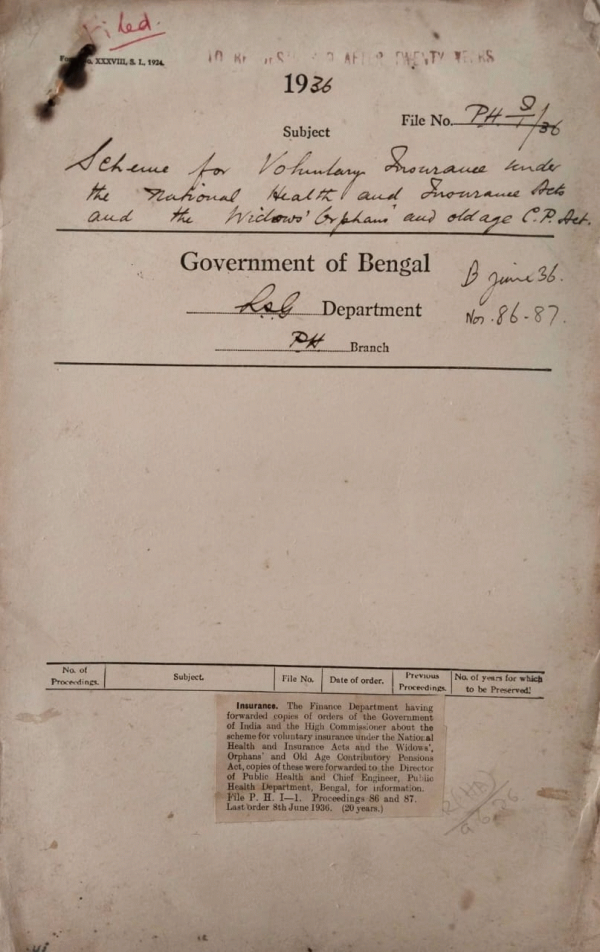 Filed.
XXXVIII, S. I., 1924.
AFTER TWENTY YEARS
1936
File No. PH
/36
Subject
Scheme for Voluntary Insurance under
the National Health and Insurance Acts
and the Widows' Orphans' and old age C.P. Act.
Government of Bengal
B June 36.
L.S.G Department
Nos. 86-87.
P.H. Branch
No. of Proceedings. Subject. File No. Date of order. Previous Proceedings. No. of years for which to be Preserved.
Insurance. The Finance Department having
forwarded copies of orders of the Government
of India and the High Commissioner about the
scheme for voluntary insurance under the National
Health and Insurance Acts and the Widows',
Orphans' and Old Age Contributory Pensions
Act, copies of these were forwarded to the Director
of Public Health and Chief Engineer, Public
Health Department, Bengal, for information.
File P. H. I—1. Proceedings 86 and 87.
Last order 8th June 1936. (20 years.)